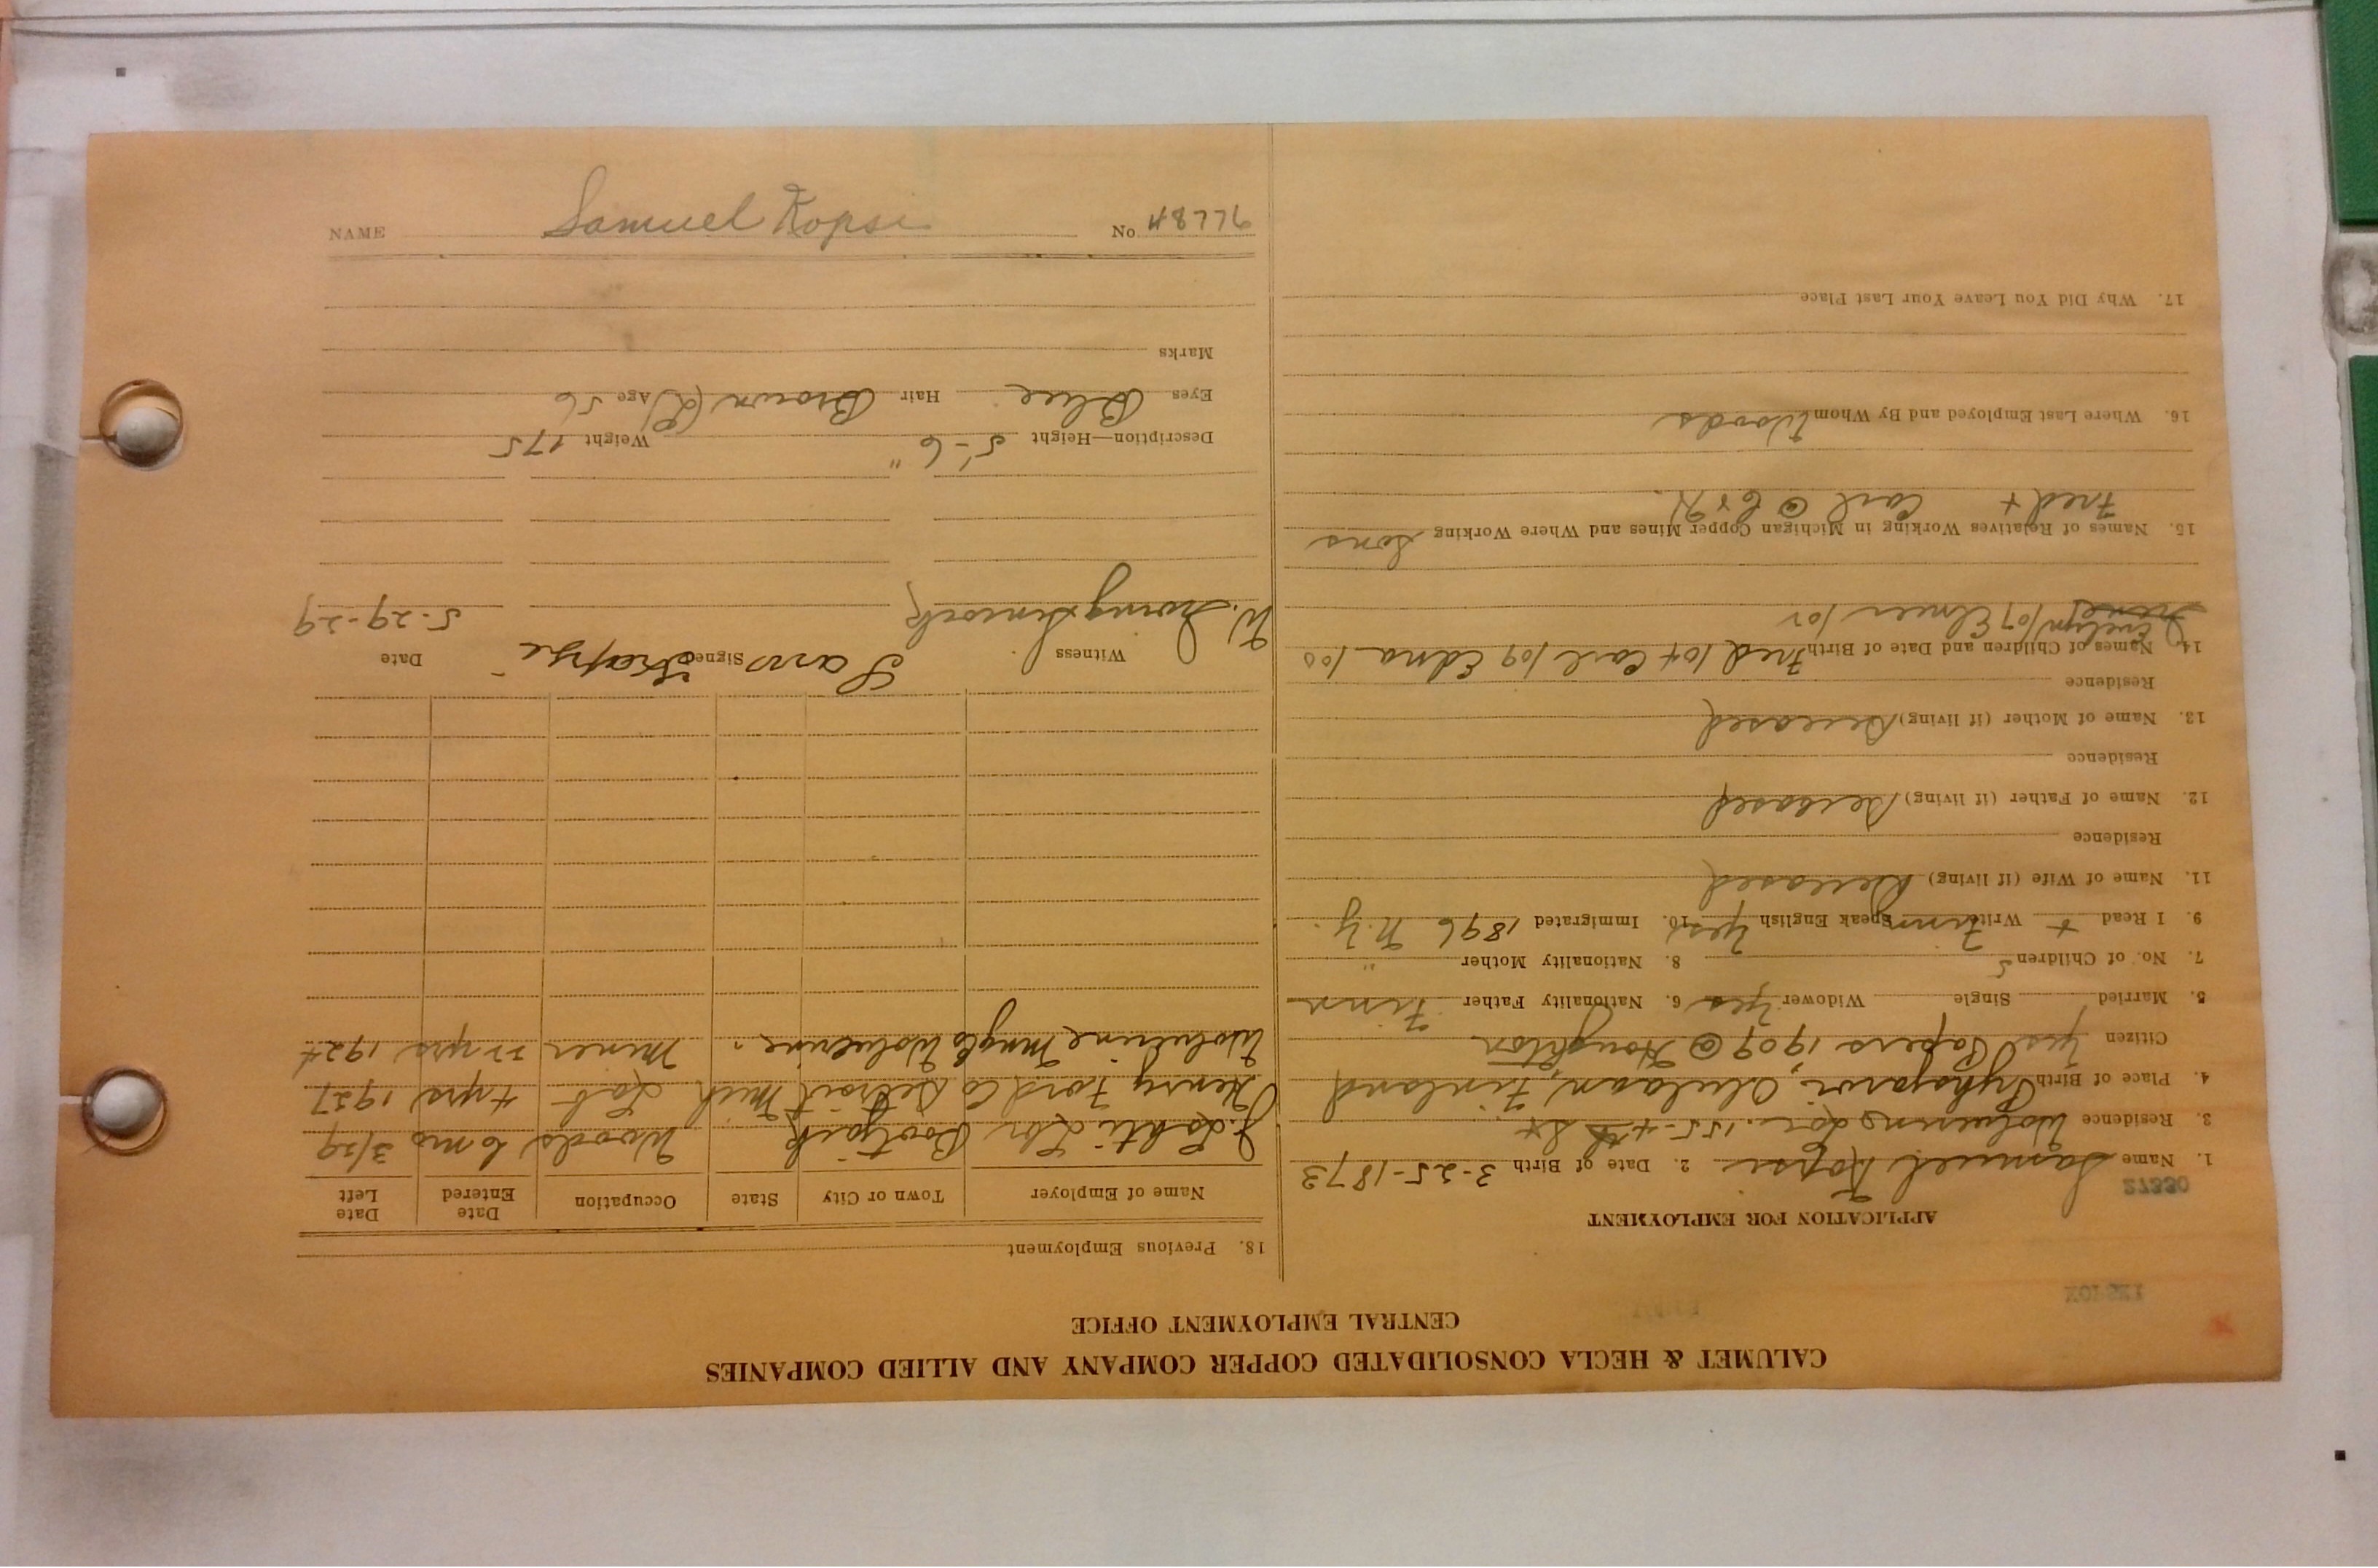 CALUMET & HECLA CONSOLIDATED COPPER COMPANY AND ALLIED COMPANIES
CENTRAL EMPLOYMENT OFFICE
APPLICATION FOR EMPLOYMENT
1. Name Samuel Kopsi 2. Date of Birth 3-25-1873
3. Residence Wolverine Loc. 155-4th St
4. Place of Birth Pyhajarvi, Oulaan, Finland
Citizen Yes Papers 1909 @ Houghton
5. Married Single Widower Yes 6. Nationality Father Finn
7. No. of Children 5 8. Nationality Mother "
9. I Read + Write Finn Speak English Yes 10. Immigrated 1896 N.Y.
11. Name of Wife (if living) Deceased
Residence
12. Name of Father (if living) Deceased
Residence
13. Name of Mother (if living) Deceased
Residence
14. Names of Children and Date of Birth Fred 104 Carl 109 Edna 100
Evelyn 107 Elmer 105
15. Names of Relatives Working in Michigan Copper Mines and Where Working Sons
Fred + Carl @ C&H.
16. Where Last Employed and By Whom Woods
17. Why Did You Leave Your Last Place
18. Previous Employment
Name of Employer Town or City State Occupation Date Entered Date Left
J. Lahti Lbr Bootjack Woods 6 mo 3/29
Henry Ford Co Detroit Mich Lab 4 yrs 1927
Wolverine Mng Co Wolverine " Miner 22 yrs 1924
Witness Signed Date
W. Sam 5-29-29
Description—Height 5'-6" Weight 175
Eyes Blue Hair Brown (L) Age 56
Marks
NAME Samuel Kopsi No